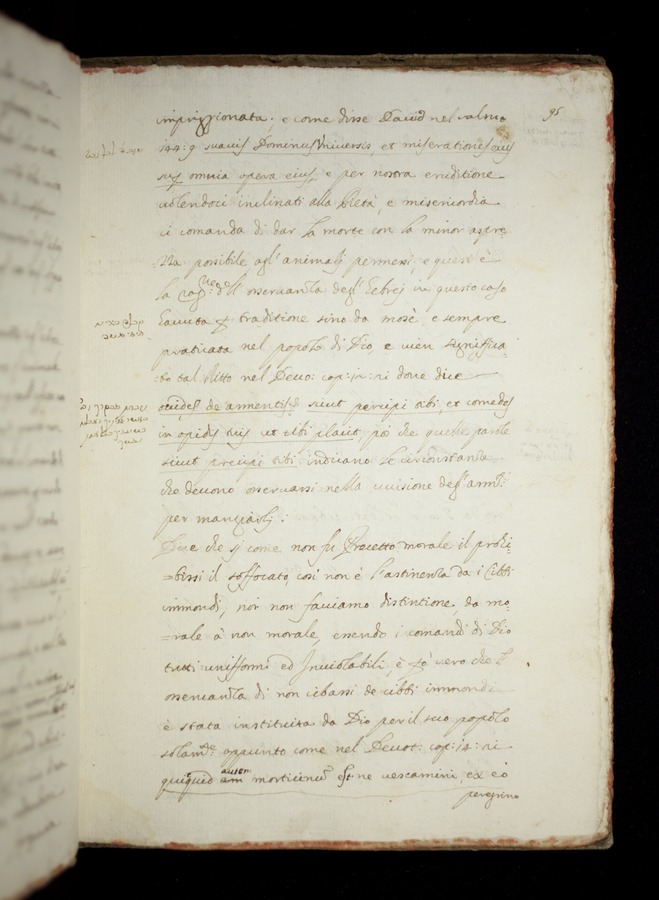 95
imprigionata; e come disse David nel salmo
144: 9 suavis Dominus Universis, et miserationes eius
sup omnia opera eius, e per nostra eruditione
volendoci inclinati alla Pietà, e misericordia
ci comanda di dar la morte con la minor aspre
=za possibile agl' animali permessi, e questa è
la rag:ne dell' osservanza degl' Ebrej in questo caso
havuta p traditione sino da mosè e sempre
praticata nel popolo di Dio, e vien significa
=to tal Ritto nel Deut: cap: 12: 21 dove dice
occides de armentis &: sicut percipi tibi, et comedes
in opidis tuis ut tibi placet, poi che quelle parole
sicut precipi tibi indicano le circonstanze
che devono osservarsi nella uccisione degl' anim:li
per mangiarli.
Dice che si come non fu Precetto morale il prohi=
=birsi il soffocato, così non è l'astinenza da i Cibbi
immondi, noi non facciamo distintione, da mo=
=rale a non morale, essendo i comandi di Dio
tutti uniformi ed Inviolabili, è po' vero che l'
osservanza di non cibarsi de cibbi immondi
è stata instituita da Dio per il suo popolo
solam:te appunto come nel Deut: cap: 14: 21
quiquid autem morticinum est ne vescamini ex eo
peregrino